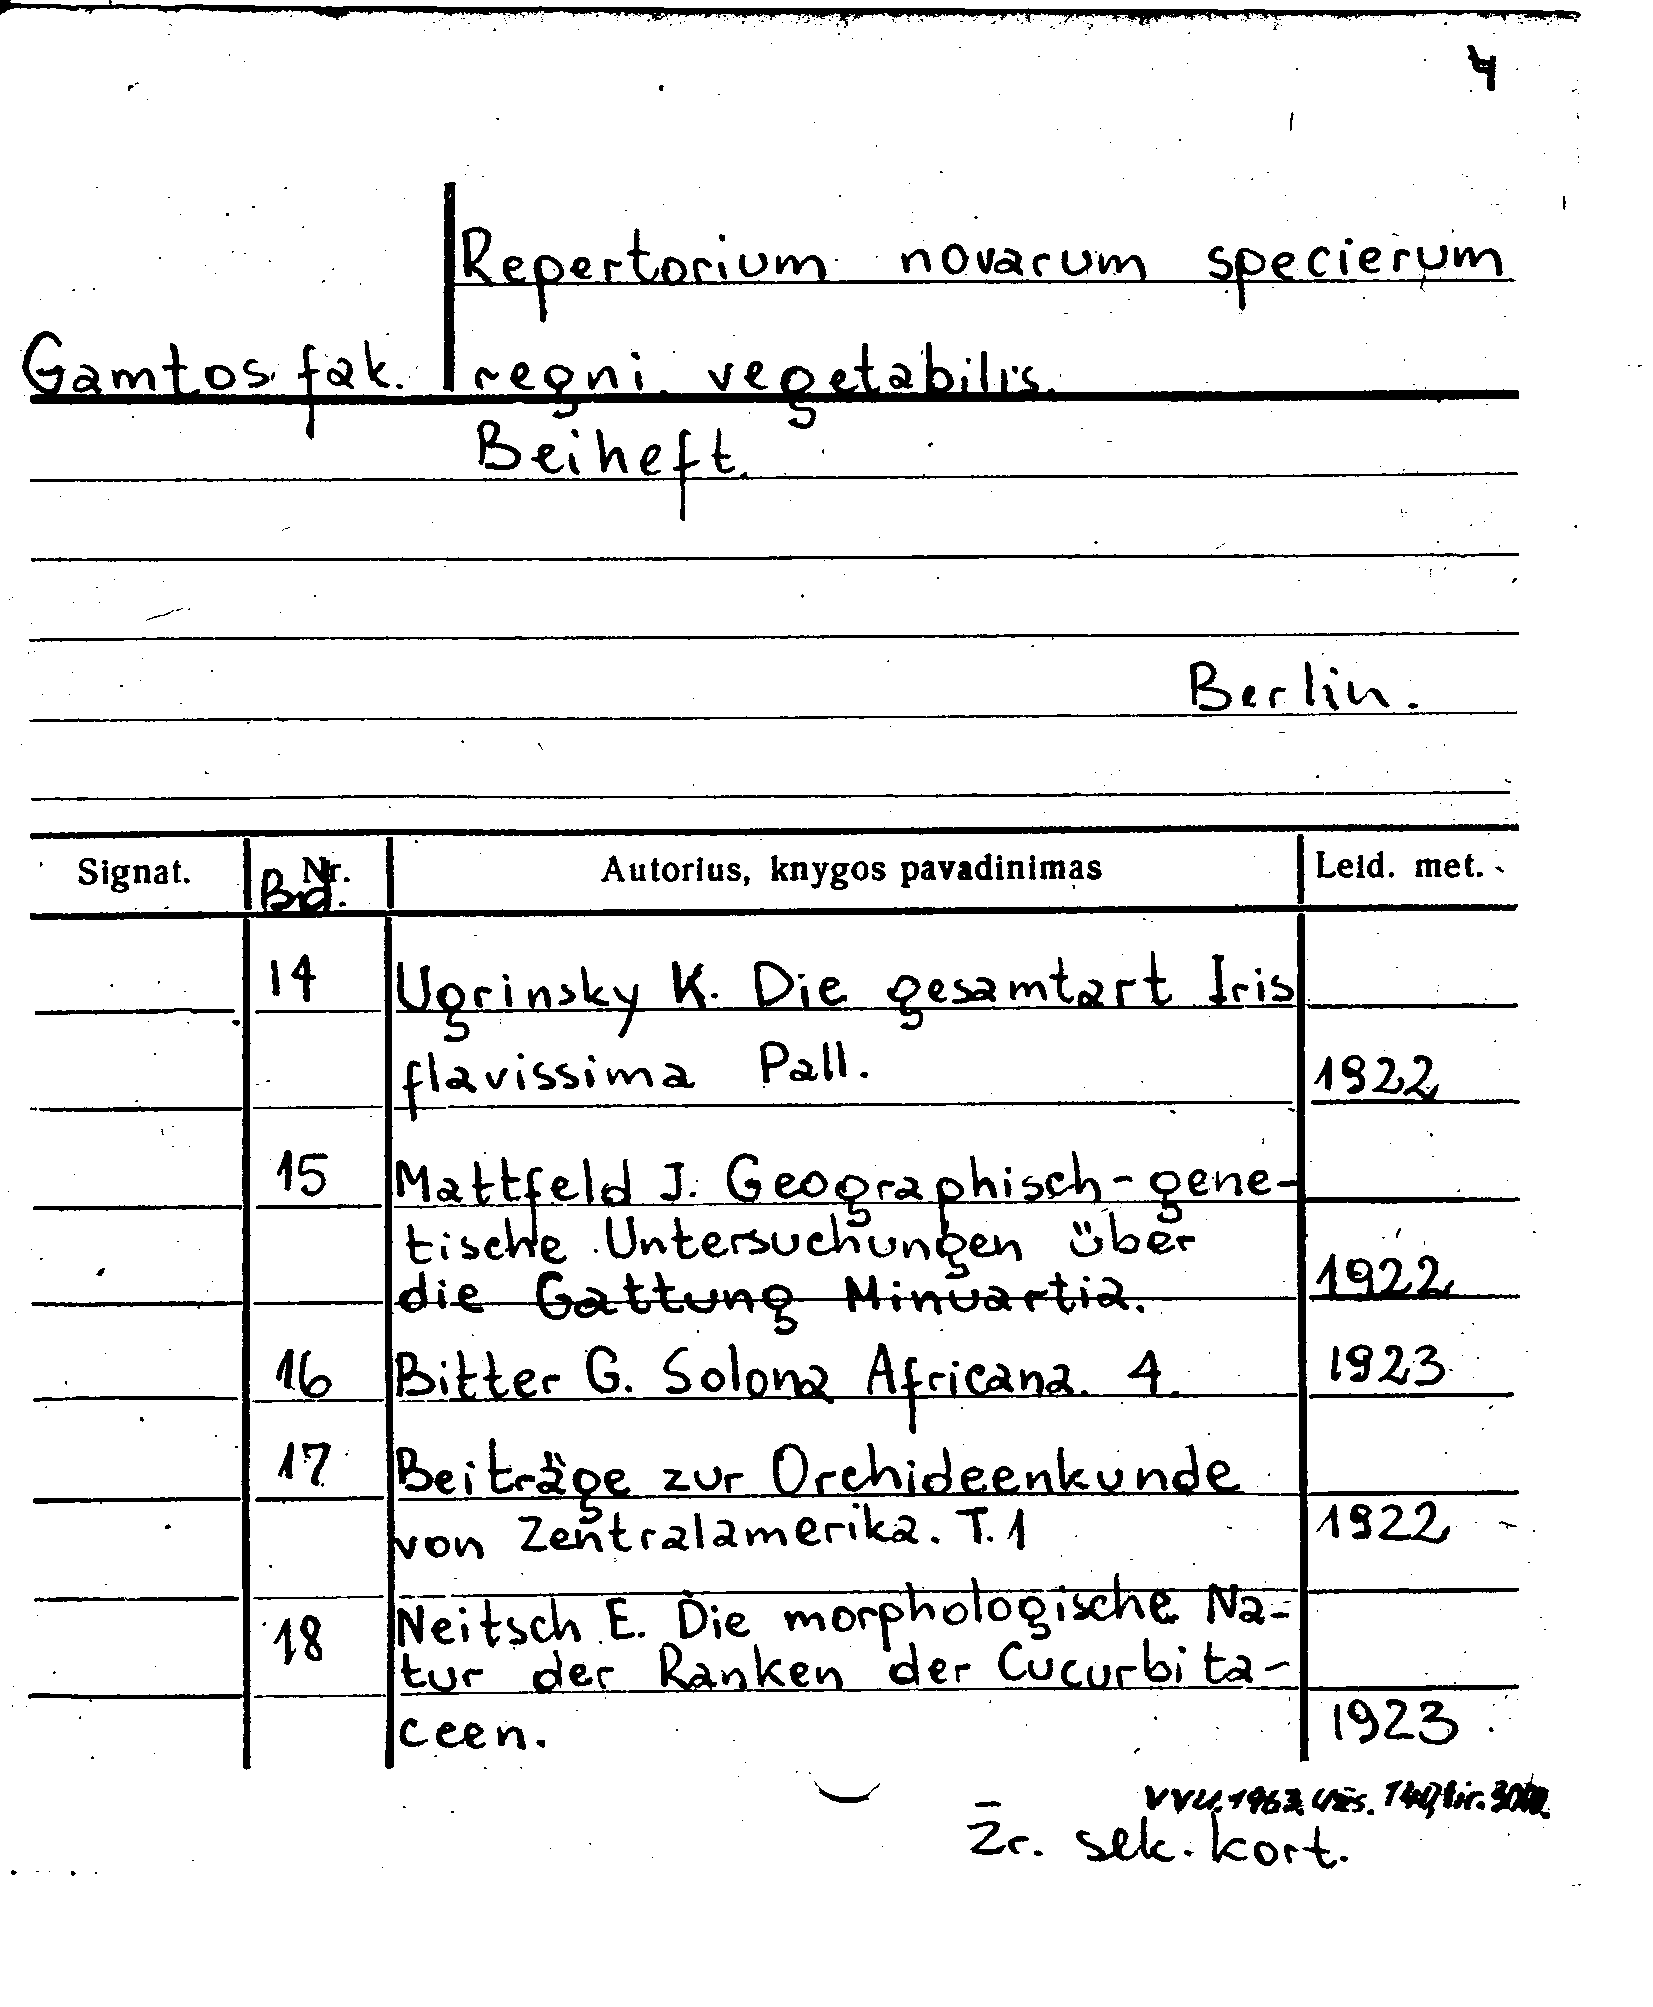 4
Repertorium novarum specierum
Gamtos fak. regni vegetabilis.
Beiheft.
Berlin.
Signat. Nr. Bd. Autorius, knygos pavadinimas Leid. met.
14 Ugrinsky K. Die gesamtart Iris
flavissima Pall. 1922
15 Mattfeld J. Geographisch-gene-
tische Untersuchungen über
die Gattung Minuartia. 1922
16 Bitter G. Solona Africana. 4. 1923
17 Beiträge zur Orchideenkunde
von Zentralamerika. T.1 1922
18 Neitsch E. Die morphologische Na-
tur der Ranken der Cucurbita-
ceen. 1923
VVU. 1963. Užs. 140, tir.
Žr. sek. kort.